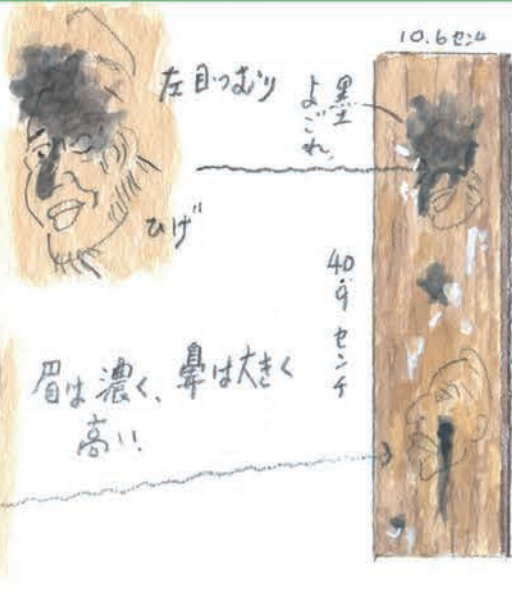 10.6センチ
左目つむり
墨よごれ
ひげ
40.9センチ
眉は濃く、鼻は大きく
高い!